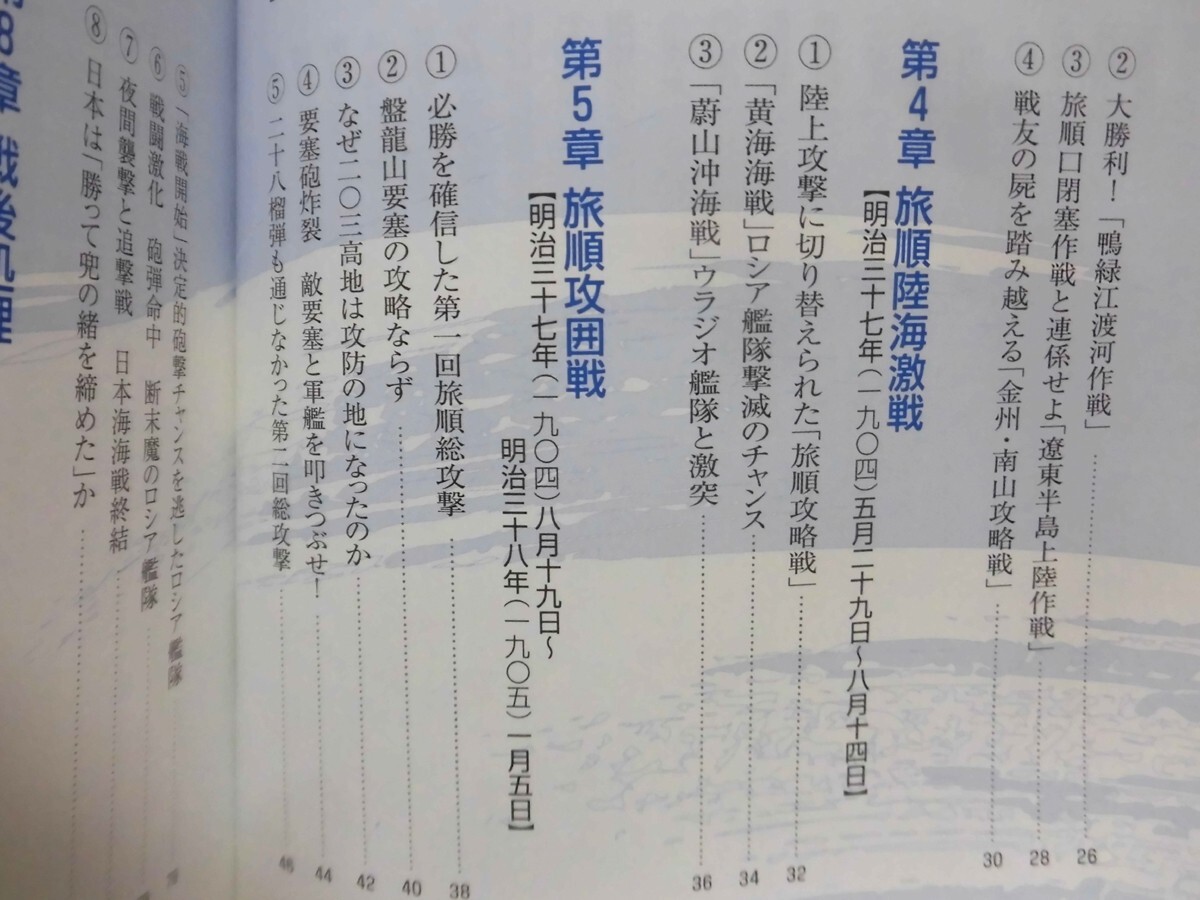 ② 大勝利！「鴨緑江渡河作戦」 26
③ 旅順口閉塞作戦と連係せよ「遼東半島上陸作戦」 28
④ 戦友の屍を踏み越える「金州・南山攻略戦」 30
第4章 旅順陸海激戦
【明治三十七年(一九〇四)五月二十九日～八月十四日】
① 陸上攻撃に切り替えられた「旅順攻略戦」 32
② 「黄海海戦」ロシア艦隊撃滅のチャンス 34
③ 「蔚山沖海戦」ウラジオ艦隊と激突 36
第5章 旅順攻囲戦
【明治三十七年(一九〇四)八月十九日～
明治三十八年(一九〇五)一月五日】
① 必勝を確信した第一回旅順総攻撃 38
② 盤龍山要塞の攻略ならず 40
③ なぜ二〇三高地は攻防の地になったのか 42
④ 要塞砲炸裂 敵要塞と軍艦を叩きつぶせ！ 44
⑤ 二十八榴弾も通じなかった第二回総攻撃 46
⑤ 「海戦開始」決定的砲撃チャンスを逃したロシア艦隊
⑥ 戦闘激化 砲弾命中 断末魔のロシア艦隊
⑦ 夜間襲撃と追撃戦 日本海海戦終結
⑧ 日本は「勝って兜の緒を締めた」か
第8章 戦後処理